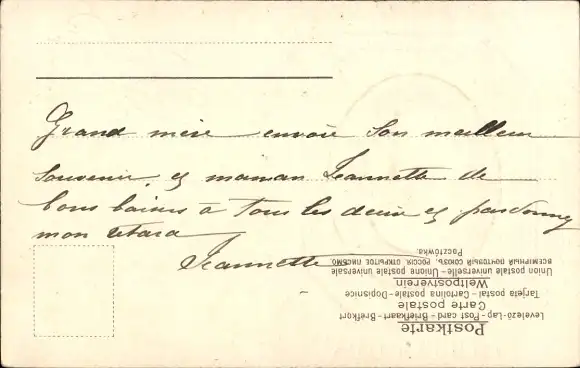 Grand mère envoie son meilleur
souvenir, et maman Jeannette de
bons baisers à tous les deux et pardonnez
mon retard
Jeannette
Postkarte
Carte postale
Levelező-Lap - Post card - Briefkaart - Brefkort
Tarjeta postal - Cartolina postale - Dopisnice
Weltpostverein
Union postale universelle - Unione postale universale
ВСЕМІРНЫЙ ПОЧТОВЫЙ СОЮЗЪ, РОССІЯ. ОТКРЫТОЕ ПИСЬМО.
Pocztówka.